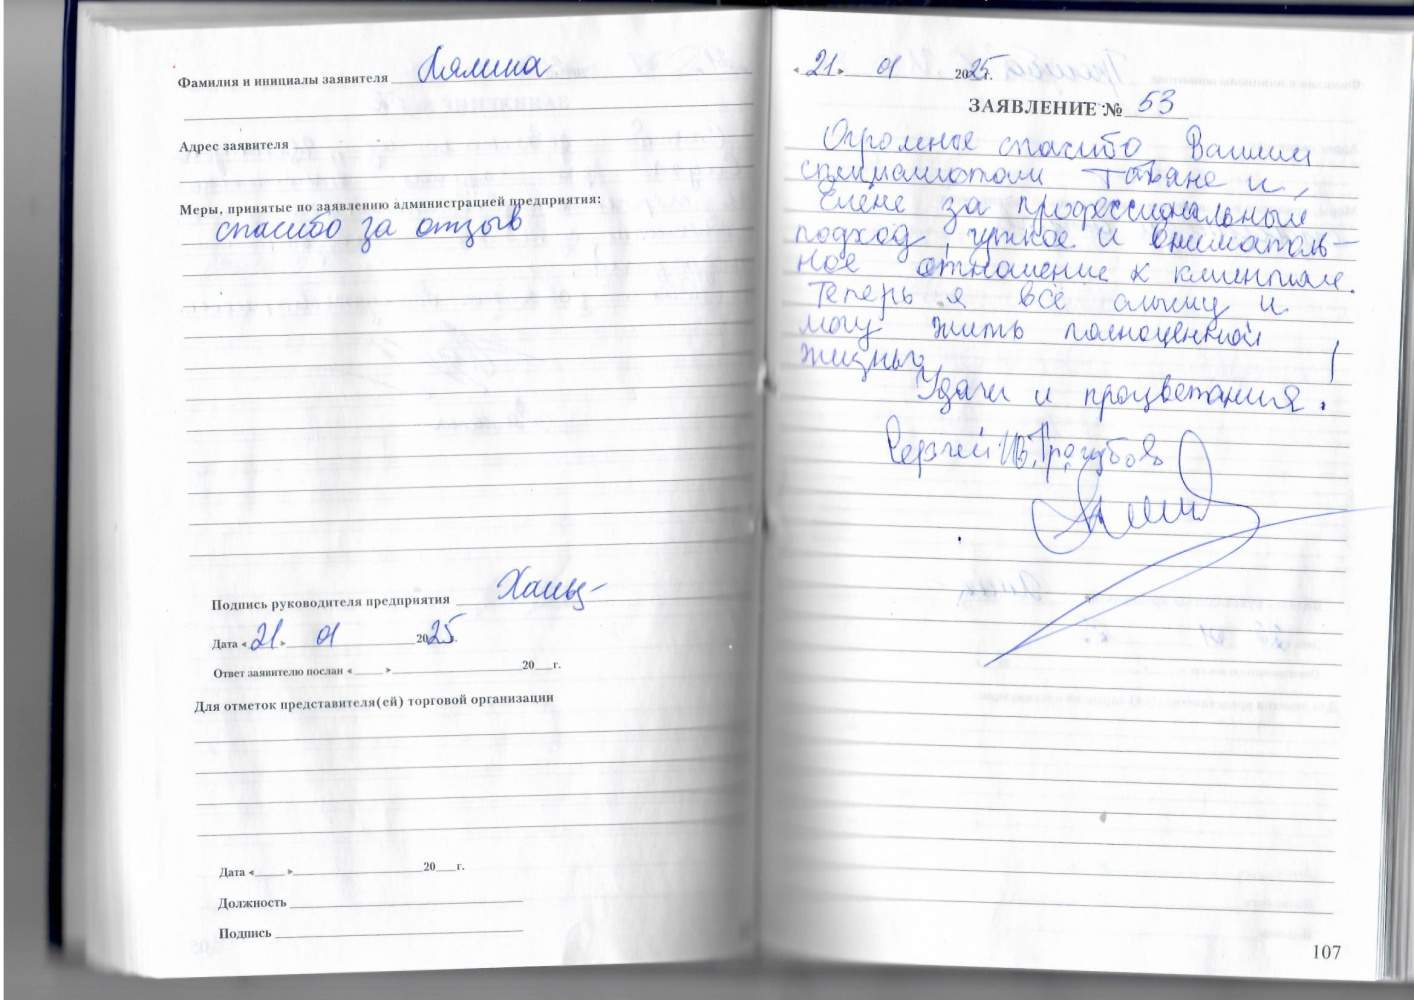 Фамилия и инициалы заявителя Лялина
Адрес заявителя
Меры, принятые по заявлению администрацией предприятия:
спасибо за отзыв
Подпись руководителя предприятия
Дата « 21 » 01 2025г.
Ответ заявителю послан « » 20 г.
Для отметок представителя(ей) торговой организации
Дата « » 20 г.
Должность
Подпись
« 21 » 01 2025г.
ЗАЯВЛЕНИЕ № 53
Огромное спасибо Вашим
специалистам Татьяне и
Елене за профессиональный
подход, чуткое и вниматель-
ное отношение к клиентам.
Теперь я всё слышу и
могу жить полноценной
жизнью
Удачи и процветания!
Сергей Ив.
107